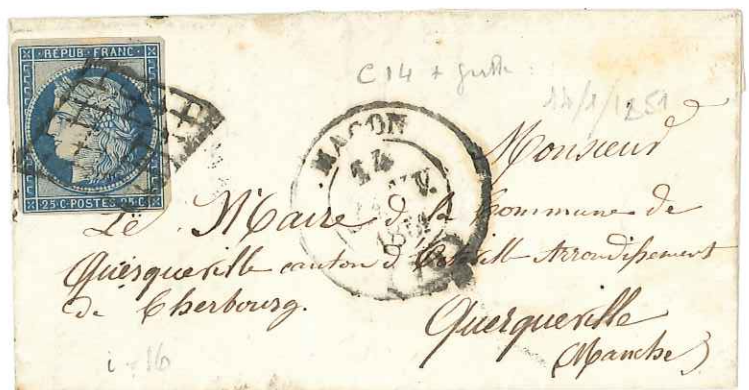 REPUB·FRANC·
25·C·POSTES·25·C·
C14 + grille
14/1/1851
MACON
14
JANV.
1851
(70)
Monsieur
Le Maire de la Commune de
Querqueville canton d'Octeville Arrondissement
de Cherbourg.
Querqueville
(Manche)
i - 16